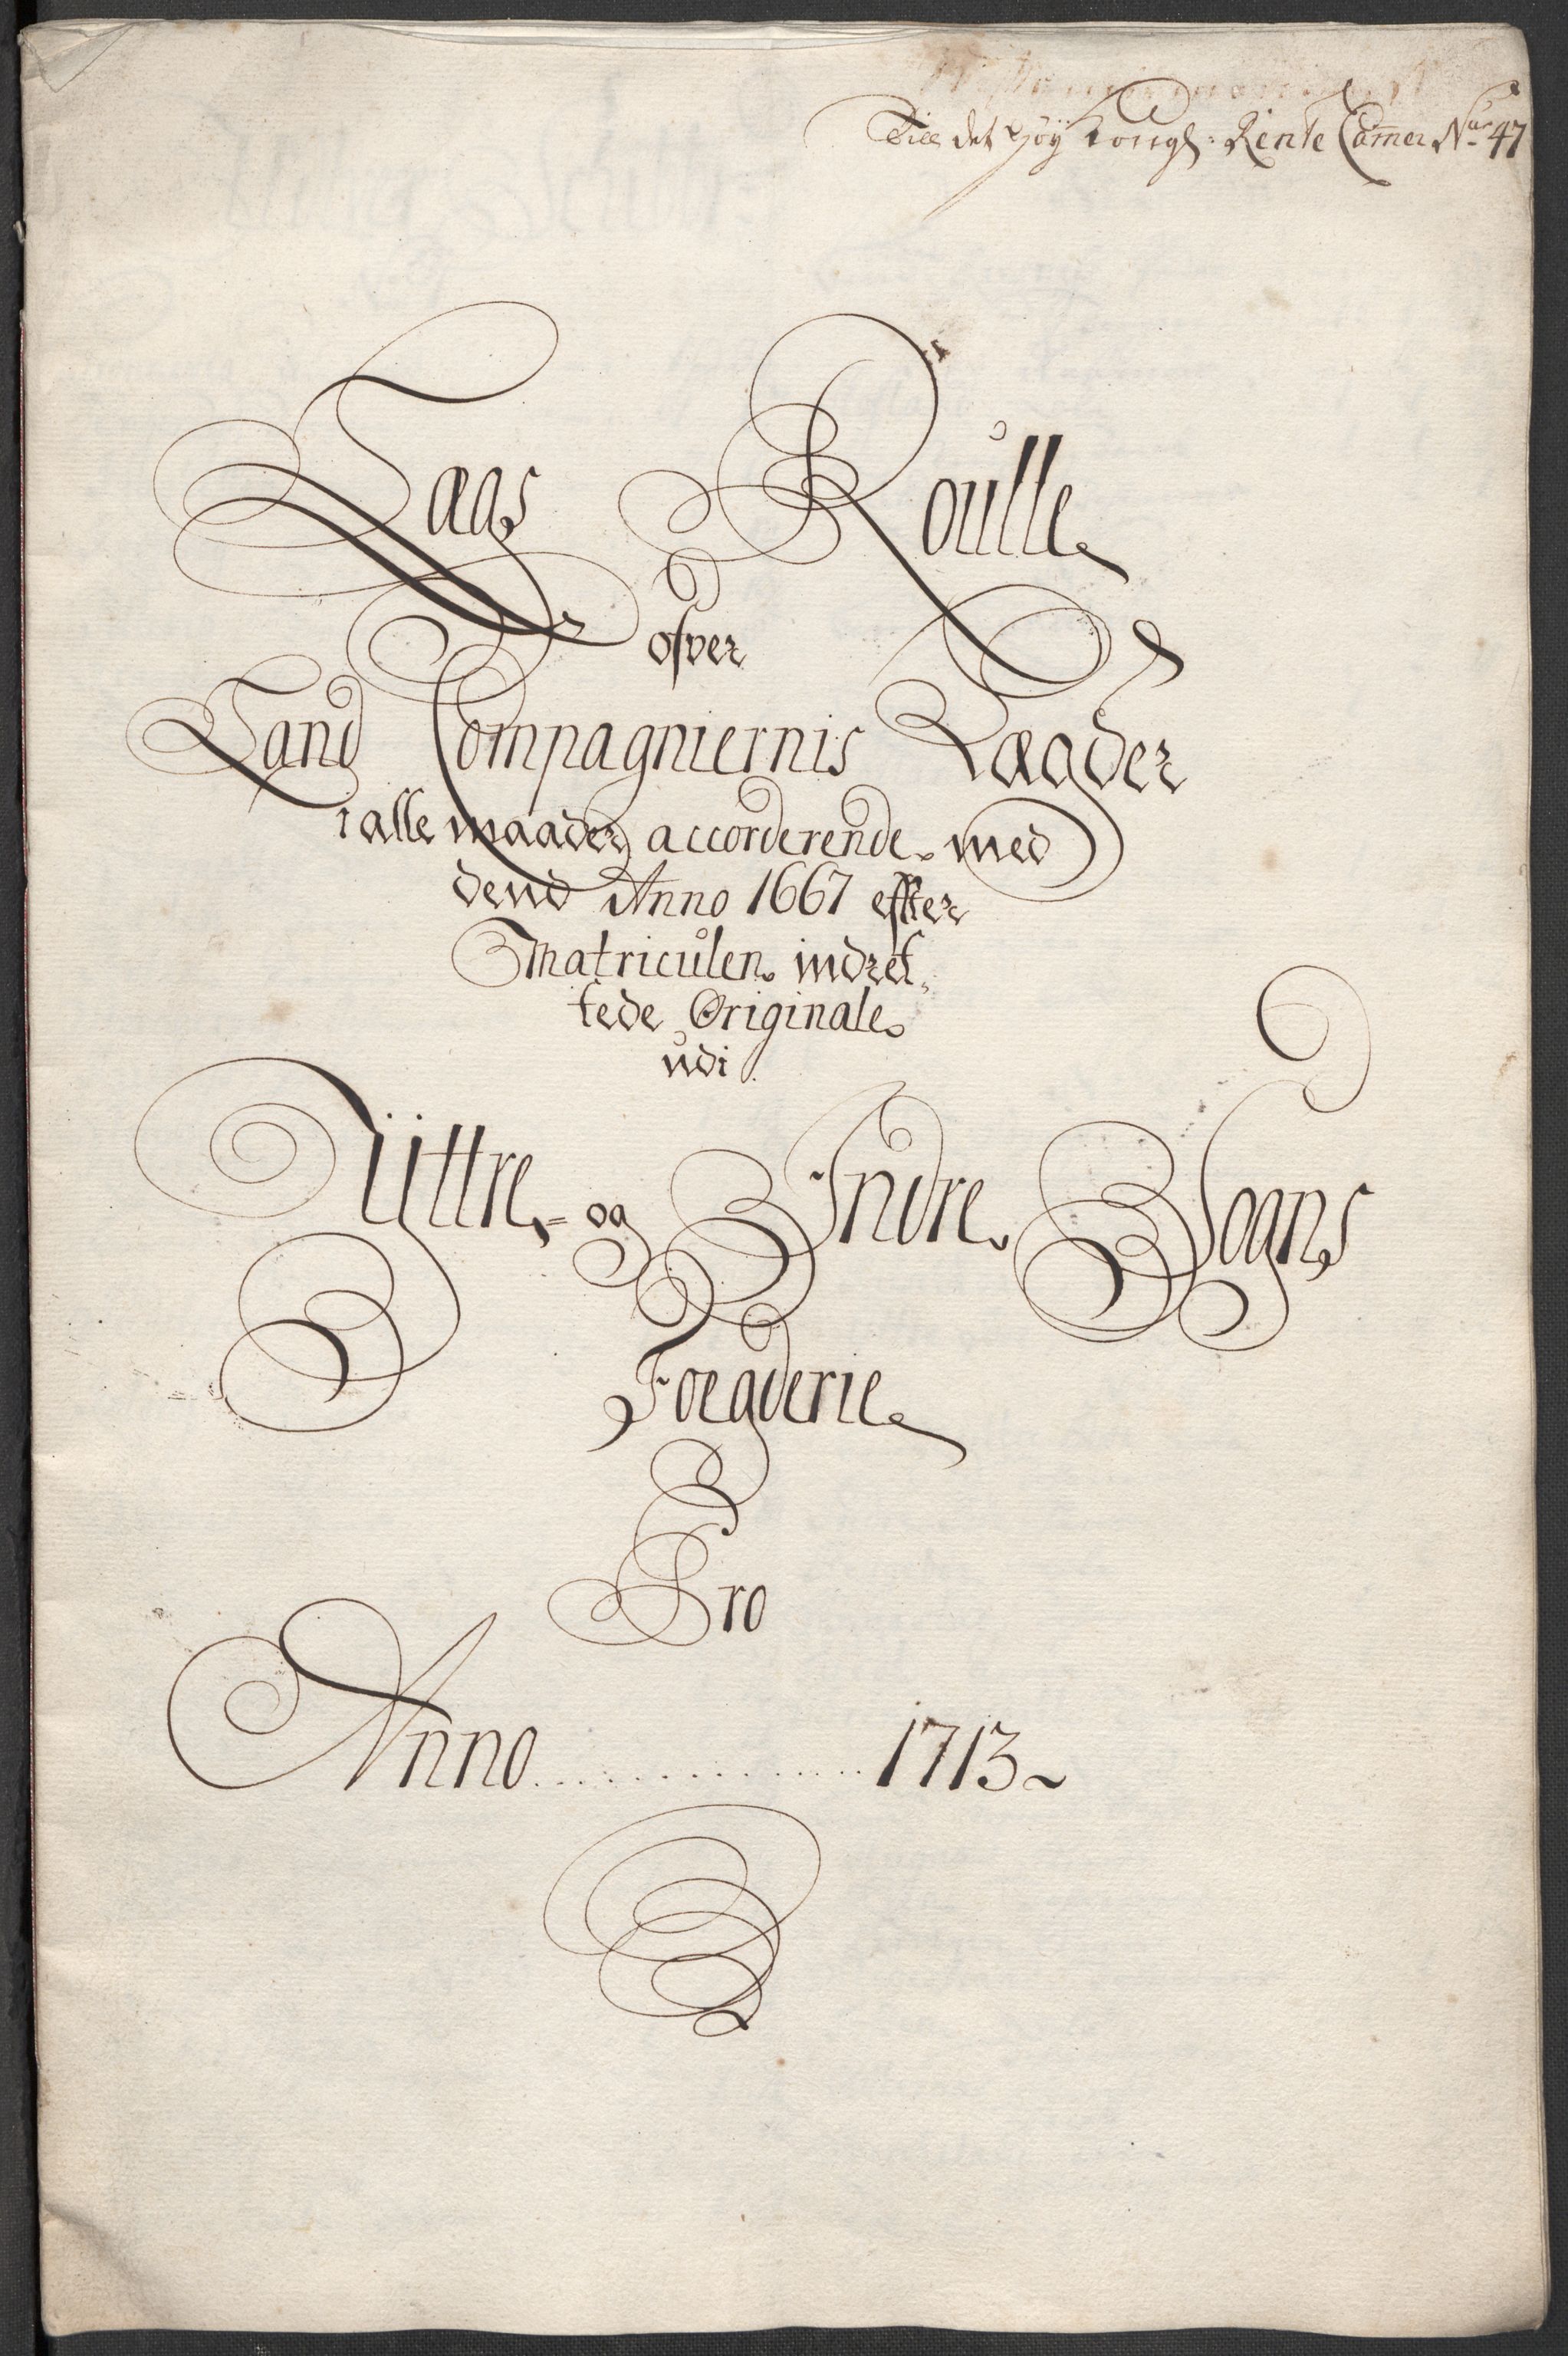 Till det Høÿ Kongl: Rente Camer No 47
Laas Roŭlle
ofver
Land Compagniernis Lægder
i alle maader accorderende med
dend Anno 1667 effter
Matricŭlen indret„
tede Originale
ŭdi
Ÿttre= og Indre Sogns
Foegderie
Pro
Anno .............. 1713